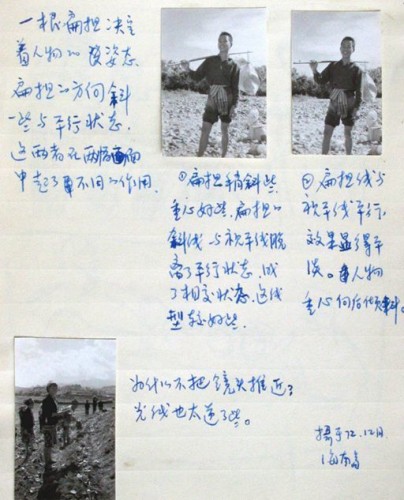 一根扁担决定
着人物的姿态
扁担的方向斜
一些与平行状态,
这两者在两幅画面
中起了不同的作用.
①扁担稍斜些,
重心好些,扁担的
斜线与视平线脱
离了平行状态,成
了相交状态,这线
型较好些.
②扁担线与
视平线平行,
效果显得平
淡。人物
重心向后倾斜。
为什么不把镜头推近了
光线也太逆了些。
摄于72.12月
海南岛